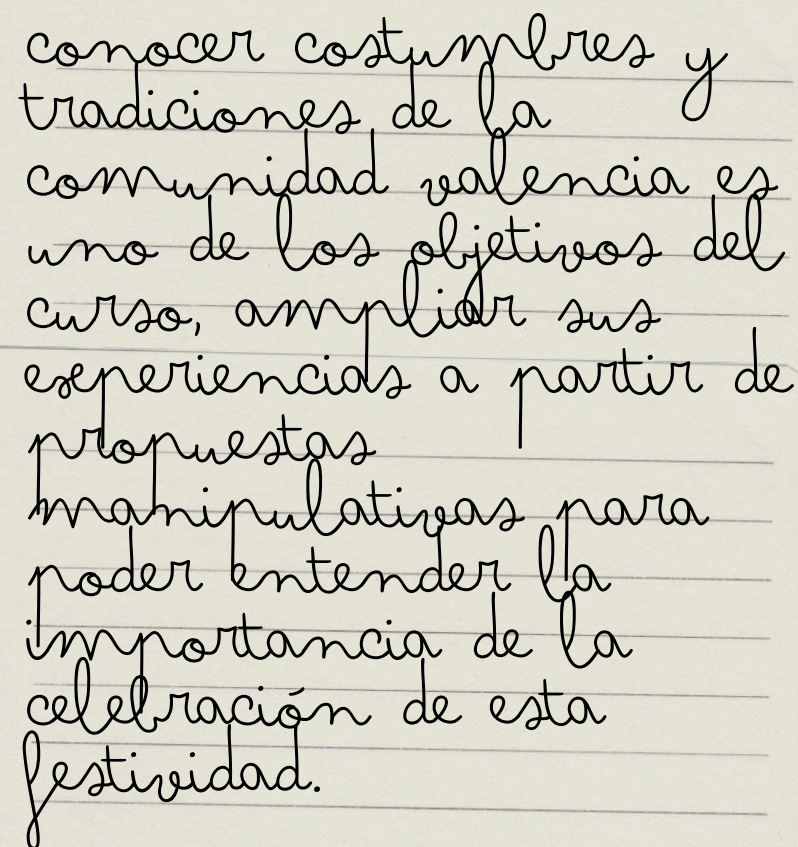 conocer costumbres y
tradiciones de la
comunidad valencia es
uno de los objetivos del
curso, ampliar sus
experiencias a partir de
propuestas
manipulativas para
poder entender la
importancia de la
celebración de esta
festividad.